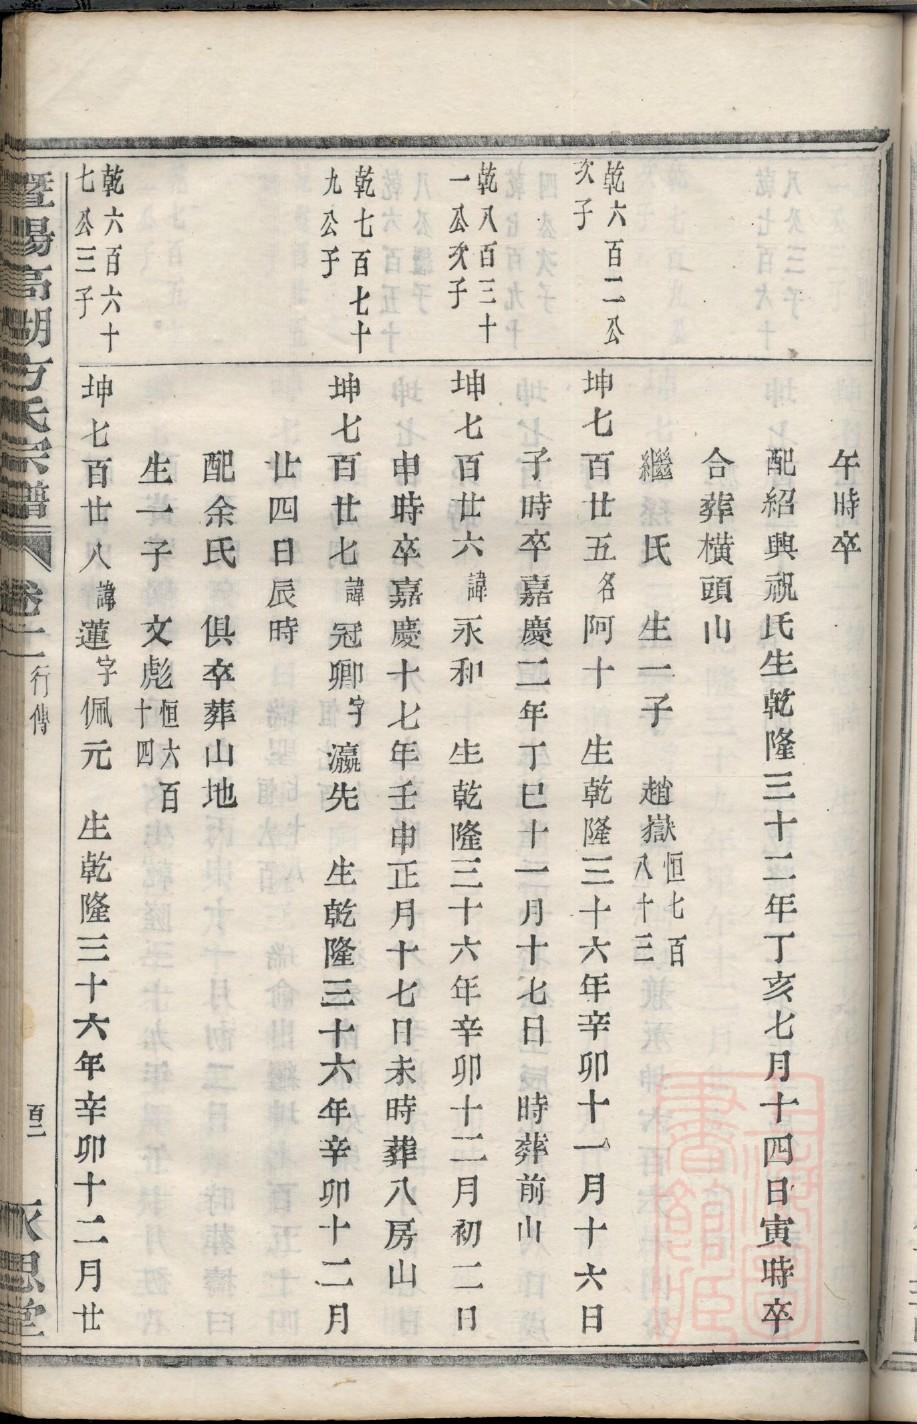 午時卒
配紹興祝氏生乾隆三十二年丁亥七月十四日寅時卒
合葬橫頭山
繼氏 生一子 趙嶽恒七百八十三
乾六百二公次子
坤七百廿五名阿十 生乾隆三十六年辛卯十一月十六日
子時卒嘉慶二年丁巳十一月十七日 時葬前山
乾八百三十一公次子
坤七百廿六諱永和 生乾隆三十六年辛卯十二月初二日
申時卒嘉慶十七年壬申正月十七日未時葬八房山
乾七百七十九公子
坤七百廿七諱冠卿字瀛先 生乾隆三十六年辛卯十二月
廿四日辰時
配余氏 俱卒葬山地
生一子 文彪恒六百十四
乾六百六十七公三子
坤七百廿八諱蓮字佩元 生乾隆三十六年辛卯十二月廿
暨陽高湖方氏宗譜 卷二 行傳
永思堂